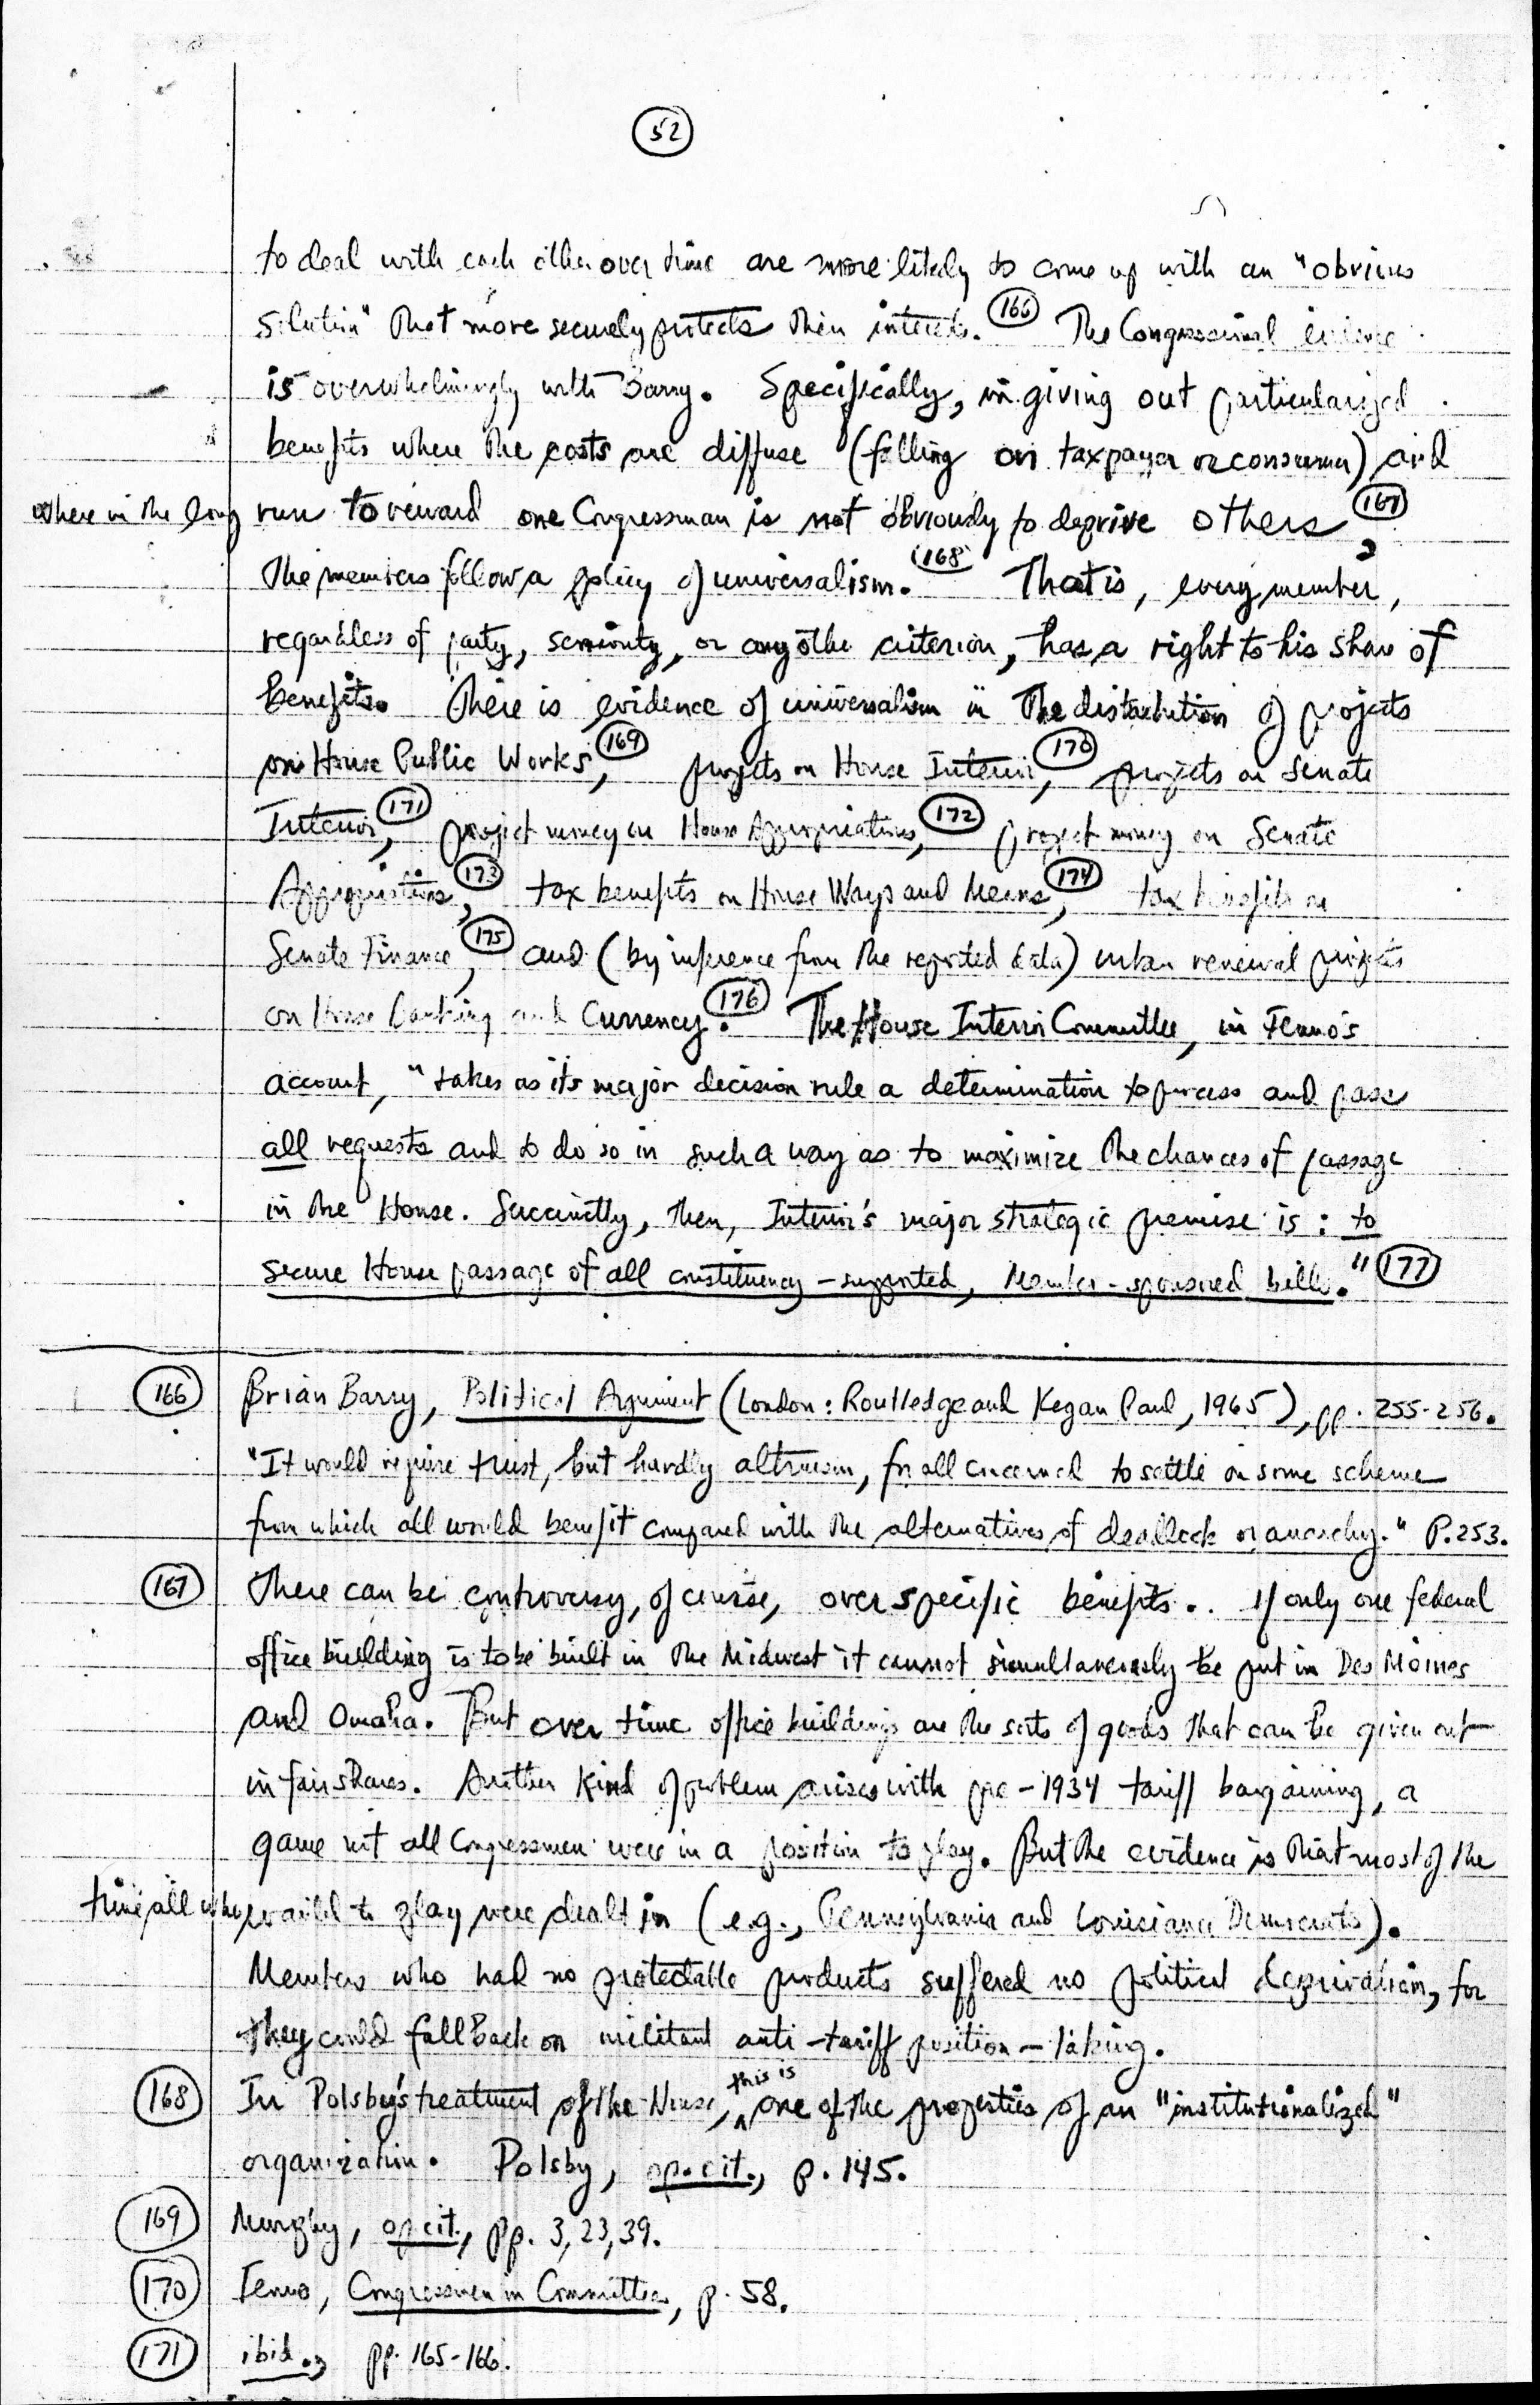 52
to deal with each other over time are more likely to come up with an "obvious
solution" that more securely protects their interests. 166 The Congressional evidence
is overwhelmingly with Barry. Specifically, in giving out particularized
benefits where the costs are diffuse (falling on taxpayer or consumer) and
where in the long run to reward one Congressman is not obviously to deprive others, 167
the members follow a policy of universalism. 168 That is, every member,
regardless of party, seniority, or any other criterion, has a right to his share of
benefits. There is evidence of universalism in the distribution of projects
on House Public Works, 169 projects on House Interior, 170 projects on Senate
Interior, 171 project money on House Appropriations, 172 project money on Senate
Appropriations, 173 tax benefits on House Ways and Means, 174 tax benefits on
Senate Finance, 175 and (by inference from the reported data) urban renewal projects
on House Banking and Currency. 176 The House Interior Committee, in Fenno's
account, "takes as its major decision rule a determination to process and pass
all requests and to do so in such a way as to maximize the chances of passage
in the House. Succinctly, then, Interior's major strategic premise is: to
secure House passage of all constituency-supported, Member-sponsored bills." 177
166 Brian Barry, Political Argument (London: Routledge and Kegan Paul, 1965), pp. 255-256.
"It would require trust, but hardly altruism, for all concerned to settle on some scheme
from which all would benefit compared with the alternatives of deadlock or anarchy." P.253.
167 There can be controversy, of course, over specific benefits. If only one federal
office building is to be built in the Midwest it cannot simultaneously be put in Des Moines
and Omaha. But over time office buildings are the sorts of goods that can be given out
in fair shares. Another kind of problem arises with pre-1934 tariff bargaining, a
game not all Congressmen were in a position to play. But the evidence is that most of the
time all who wanted to play were dealt in (e.g., Pennsylvania and Louisiana Democrats).
Members who had no protectable products suffered no political deprivation, for
they could fall back on militant anti-tariff position-taking.
168 In Polsby's treatment of the House, this is one of the properties of an "institutionalized"
organization. Polsby, op. cit., p. 145.
169 Murphy, op cit., pp. 3, 23, 39.
170 Fenno, Congressmen in Committees, p. 58.
171 ibid., pp. 165-166.